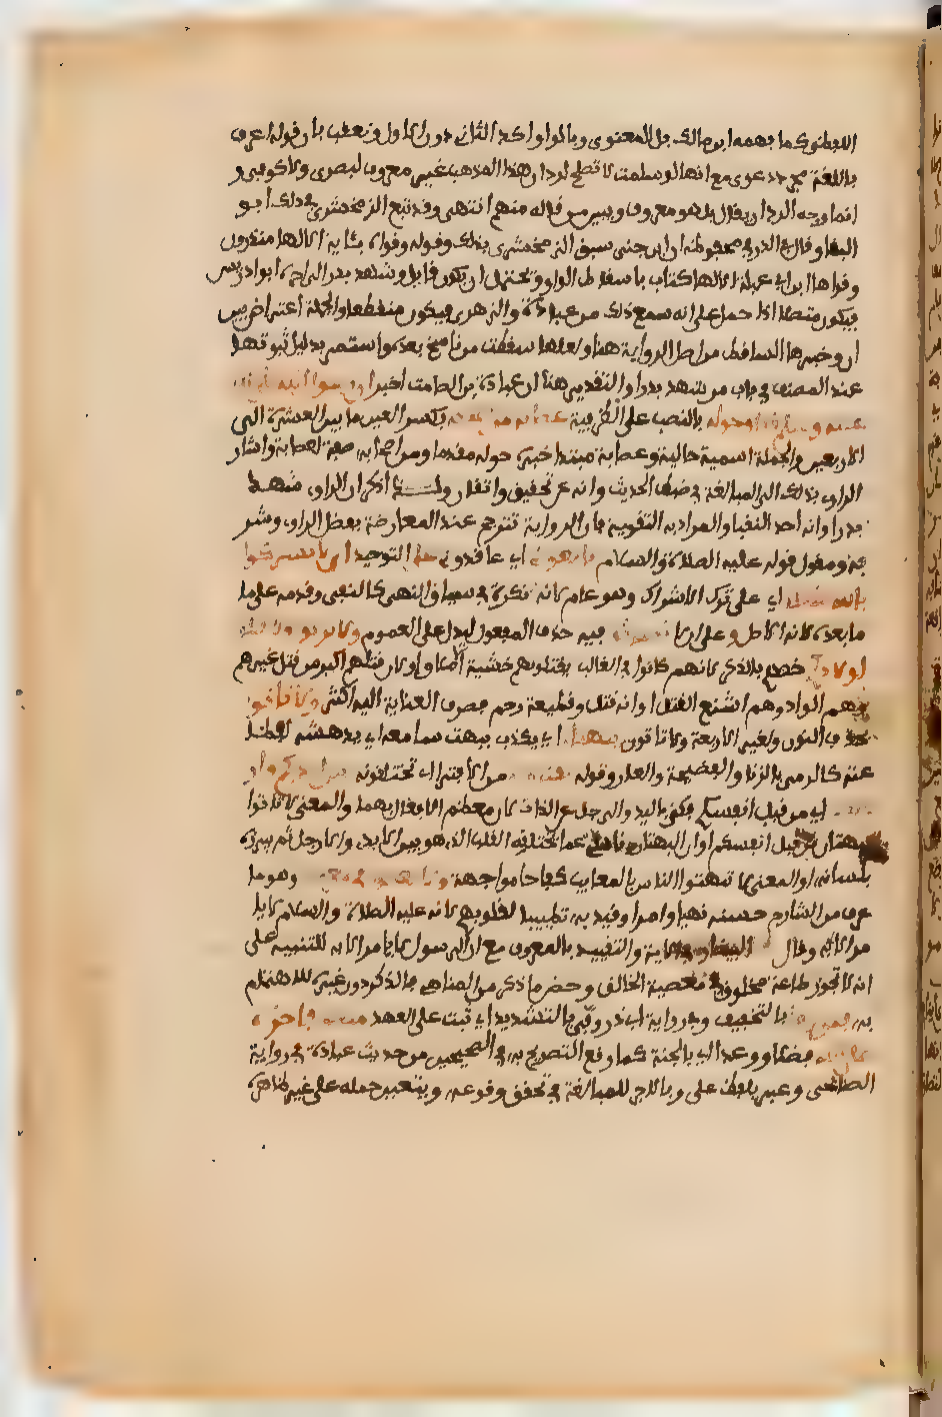 اللفظي كما بهمه ابن مالك بل المعنوي وبالواو اكد الثاني دون الاول وتعقب بان قوله اعرف
باللغة مجرد دعوى مع انها لو سلمت لا تصلح لرد ان هذا المذهب غير معروف لبصري ولا كوفي و
انما وجه الرد ان يقال بل هو معروف وبين من قاله منهم انتهى وقد تبع الزمخشري في ذلك ابو
البقا وقال في الدر في محفوظه ان ابن جني سبق الزمخشري بذلك وقوله وقواه بئاية الا لها منذرون
وقراها ابن ابي عبلة الا لها كتاب باسقاط الواو وتحتمل ان يكون قايل وشهد بدرا الزهري ابو ادريس
فيكون متصلا اذا حمل على انه سمع ذلك من عبادة والزهري فيكون منقطعا والجملة اعتراض بين
ان وخبرها الساقط من اصل الرواية هنا ولعلها سقطت من ناسخ بعده واستمر بدليل ثبوتها
عند المصنف في باب من شهد بدرا والتقدير هنا ان عبادة بن الصامت اخبر ان رسول الله
وحوله بالنصب على الظرفية عصابة من بكسر العين ما بين العشرة الى
الاربعين والجملة اسمية حالية وعصابة مبتدا خبره حوله مقدما ومن اصحابه صفة لعصابة واشار
الراوي بذلك الى المبالغة في ضبط الحديث وانه عن تحقيق واتقان ولذا ذكر ان الراوي شهد
بدرا وانه احد النقبا والمراد به التقوية فان الرواية تترجح عند المعارضة بفضل الراوي وشر
فه ومقول قوله عليه الصلاة والسلام بايعوني اي عاقدوني على التوحيد ان لا تشركوا
بالله شيئا اي على ترك الاشراك وهو عام لانه نكرة في سياق النهي كالنفي وقدمه على ما
ما بعده لانه الاصل وعلى ان لا تسرقوا فيه حذف المفعول ليدل على العموم ولا تزنوا ولا تقتلوا
اولادكم خصهم بالذكر لانهم كانوا في الغالب يقتلونهم خشية الاملاق ولان قتلهم اكبر من قتل غيرهم
وهم الواد وهو اشنع القتل او انه قتل وقطيعة رحم فصرف العناية اليه اكثر ولا تاتوا
بحذف النون ولغير الاربعة ولا تاتون ببهتان اي بكذب يبهت سامعه اي يدهشه لفظا
عته كالرمي بالزنا والفضيحة والعار وقوله تفترونه من الافترا اي تختلقونه بين ايديكم و
اي من قبل انفسكم فكنى باليد والرجل عن الذات لان معظم الافعال بهما والمعنى لا تاتوا
ببهتان من قبل انفسكم او ان البهتان ناشئ عما يختلقه القلب الذي هو بين الايدي والارجل ثم يبرزه
بلسانه او المعنى لا تبهتوا الناس بالمعايب كفاحا مواجهة ولا تعصوا في معروف وهو ما
عرف من الشارع حسنه نهيا وامرا وقيد به تطييبا لقلوبهم لانه عليه الصلاة والسلام لا يا
مر الا به وقال البيضاوي في الاية والتقييد بالمعروف مع ان الرسول لا يامر الا به للتنبيه على
انه لا تجوز طاعة مخلوق في معصية الخالق وخص ما ذكر من المناهي بالذكر دون غيره للاهتمام
به فمن وفى بالتخفيف وفي رواية ابي ذر وفّى بالتشديد اي ثبت على العهد منكم فاجره
على الله فضلا ووعدا اي بالجنة كما وقع التصريح به في الصحيحين من حديث عبادة في رواية
الصنابحي وعبر بلفظ على وبالاجر للمبالغة في تحقق وقوعه ويتعين حمله على غير ظاهره